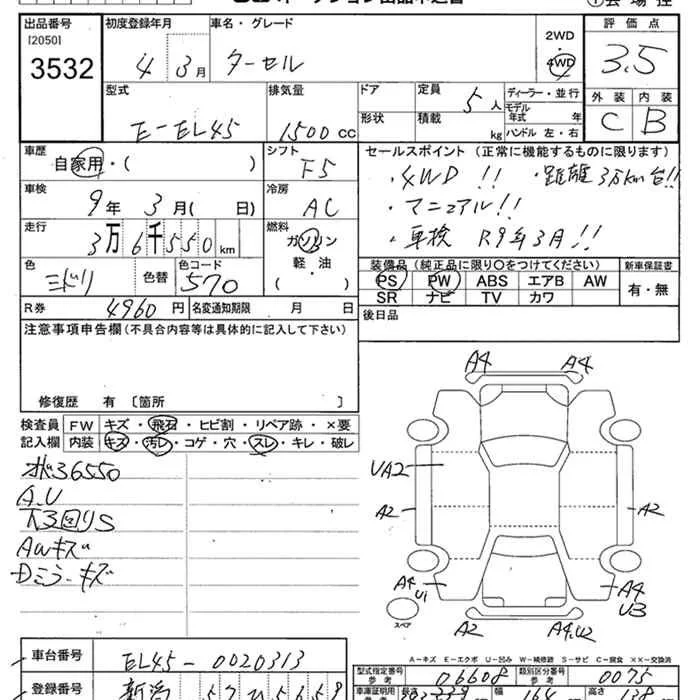 出品番号 初度登録年月 車名・グレード 2WD 評価点
[2050] 4WD
3532 4 3月 ターセル 3.5
型式 排気量 ドア 定員 ディーラー・並行 外装 内装
E-EL45 1500cc 5人 モデル年式 年 C B
形状 積載 kg ハンドル 左・右
車歴 シフト セールスポイント (正常に機能するものに限ります)
自家用・( ) F5 ・4WD!! ・距離3万km台!!
車検 冷房 ・マニュアル!!
9年 3月( 日) AC ・車検 R9年3月!!
走行 燃料
3万6千550km ガソリン
色 色替 色コード 軽・油
ミドリ 570 ・
装備品 (純正品に限り〇をつけてください) 新車保証書
PS PW ABS エアB AW 有・無
SR ナビ TV カワ
R券 4960円 名変通知期限 月 日 後日品
注意事項申告欄(不具合内容等は具体的に記入して下さい)
修復歴 有 〔箇所 〕
検査員 FW キズ・飛石・ヒビ割・リペア跡・×要
記入欄 内装 キズ・汚レ・コゲ・穴・スレ・キレ・破レ
36550
A.U
下回りS
AWキズ
Dミラーキズ
A4 A4
UA2
A2 A2
A4 U1 A4 U3
スペア
A2 A4.U2
A-キズ E-エクボ U-凹み W-補修跡 S-サビ C-腐食 XX-交換済
車台番号 EL45-0020313
型式指定番号 参考 06608 類別区分番号 参考 0075
登録番号 新潟
車庫証明用 長さ 幅 高さ